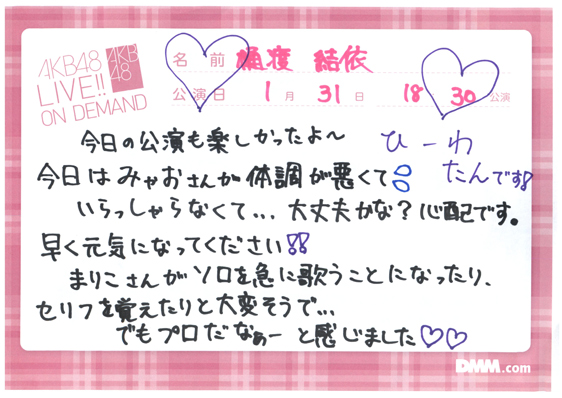 AKB48
LIVE!!
ON DEMAND
AKB
48
名前 樋渡 結依
公演日 1月 31日 18 30 公演
今日の公演も楽しかったよ〜
ひーわ
たんです!
今日はみゃおさんが体調が悪くて
いらっしゃらなくて... 大丈夫かな?心配です。
早く元気になってください!!
まりこさんがソロを急に歌うことになったり、
セリフを覚えたりと大変そうで...
でもプロだなぁーと感じました♡♡
DMM.com